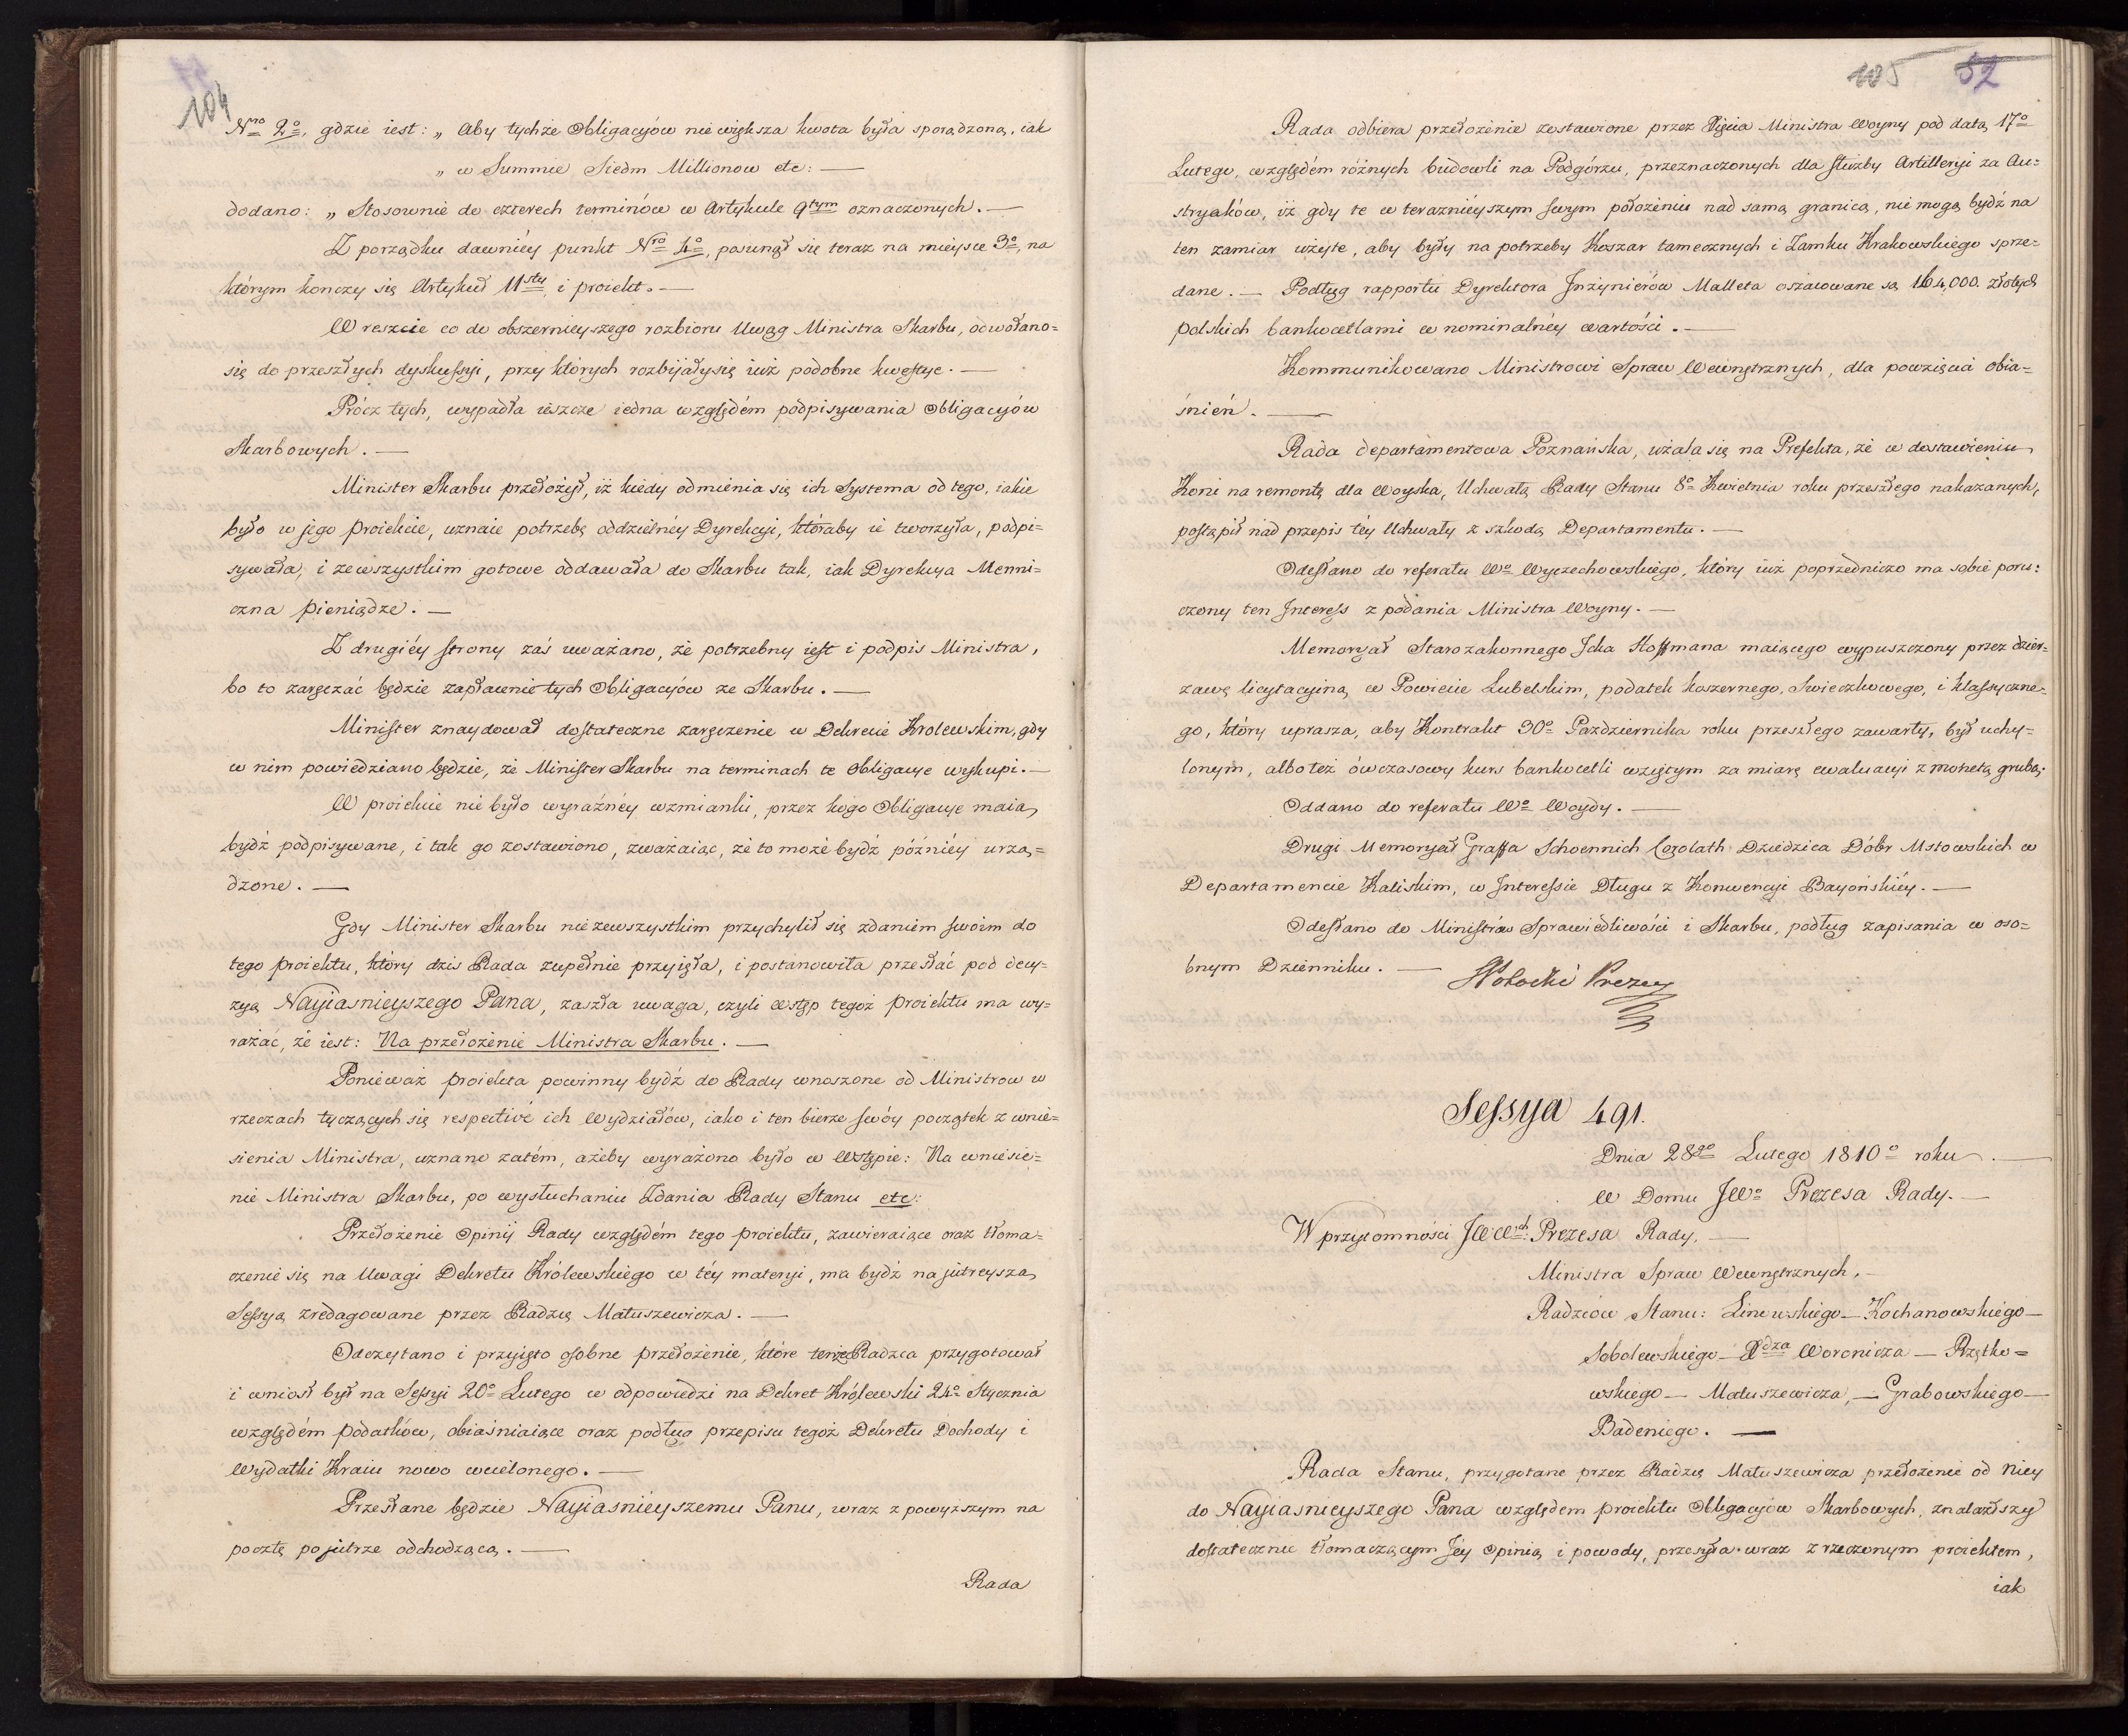 104
Nro 2o, gdzie iest: „ Aby tychże Obligacyów nie większa kwota była sporządzona, iak
„ w Summie Siedm Millionow etc: —
dodano: „ Stosownie do czterech terminów w Artykule 9tym oznaczonych. —
Z porządku dawniéy punkt Nro 4o, posunął się teraz na mieysce 3o, na
którym kończy się Artykuł 11sty i proiekt. —
W reszcie co do obszernieyszego rozbioru Uwag Ministra Skarbu, odwołano=
się do przeszłych dyskussyi, przy których rozbijały się iuż podobne kwestye. —
Prócz tych, wypadła ieszcze iedna względém podpisywania Obligacyów
Skarbowych. —
Minister Skarbu przełożył, iż kiedy odmienia się ich Systema od tego, iakie
było w jego proiekcie, uznaie potrzebę oddzielnéy Dyrekcyi, któraby ie tworzyła, podpi=
sywała, i zewszystkim gotowe oddawała do Skarbu tak, iak Dyrekcya Menni=
czna pieniądze. —
Z drugiéy strony zaś uważano, że potrzebny iest i podpis Ministra,
bo to zaręczać będzie zapłacenie tych Obligacyów ze Skarbu. —
Minister znaydował dostateczne zaręczenie w Dekrecie Krolewskim, gdy
w nim powiedziano będzie, że Minister Skarbu na terminach te Obligacye wykupi. —
W proiekcie nie było wyraźnéy wzmianki, przez kogo Obligacye maią
bydź podpisywane, i tak go zostawiono, zważaiąc, że to może bydź późniéy urzą=
dzone. —
Gdy Minister Skarbu nie zewszystkim przychylił się zdaniem swoim do
tego proiektu, który dzis Rada zupełnie przyięła, i postanowiła przesłać pod decy=
zyą Nayiasnieyszego Pana, zaszła uwaga, czyli wstęp tegoż proiektu ma wy=
rażać, że iest: Na przełożenie Ministra Skarbu. —
Ponieważ proiekta powinny bydź do Rady wnoszone od Ministrow w
rzeczach tyczących się respective ich Wydziałów, iako i ten bierze swóy początek z wnie=
sienia Ministra, uznano zatém, ażeby wyrażono było w Wstępie: Na wniesie=
nie Ministra Skarbu, po wysłuchaniu Zdania Rady Stanu etc:
Przełożenie Opinij Rady względém tego proiektu, zawieraiące oraz tłoma=
czenie się na Uwagi Dekretu Królewskiego w téy materyi, ma bydź na jutreyszą
Sessyą zredagowane przez Radzcę Matuszewicza. —
Odczytano i przyięto osobne przełożenie, które tenże Radzca przygotował
i wniosł był na Sessyi 20o Lutego w odpowiedzi na Dekret Królewski 24o Stycznia
względém podatków, obiaśniaiące oraz podług przepisu tegoż Dekretu Dochody i
Wydatki Kraiu nowo wcielonego. —
Przesłane będzie Nayiasnieyszemu Panu, wraz z powyższym na
pocztę pojutrze odchodzącą. —
Rada
105 52
Rada odbiera przełożenie zostawione przez Xięcia Ministra Woyny pod datą 17o
Lutego, względém różnych budowli na Podgórzu, przeznaczonych dla służby Artilleryi za Au=
stryaków, iż gdy te w teraznieyszym swym położeniu nad samą granicą, nie mogą bydź na
ten zamiar użyte, aby były na potrzeby Koszar tamecznych i Zamku Krakowskiego sprze=
dane. — Podług rapportu Dyrektora Inżynierów Malleta oszacowane są 164,000. złotych
polskich bankocetlami w nominalnéy wartości. —
Kommunikowano Ministrowi Spraw Wewnętrznych, dla powzięcia obia=
śnień. —
Rada departamentowa Poznańska, użala się na Prefekta, że w dostawieniu
Koni na remontę dla Woyska, Uchwałą Rady Stanu 8o Kwietnia roku przeszłego nakazanych,
postąpił nad przepis téy Uchwały z szkodą Departamentu. —
Odesłano do referatu Wo Wyczechowskiego, który iuż poprzedniczo ma sobie poru=
czony ten Interess z podania Ministra Woyny. —
Memoryał Starozakonnego Icka Hoffmana maiącego wypuszczony przez dzier=
zawę licytacyiną w Powiecie Lubelskim, podatek koszernego, Swieczkowego, i klassyczne=
go, który uprasza, aby Kontrakt 30o Października roku przeszłego zawarty, był uchy=
lonym, albo też ówczasowy kurs bankocetli wziętym za miarę ewaluacyi z monetą grubą.
Oddano do referatu Wo Woydy. —
Drugi Memoryał Graffa Schoennich Carolath Dziedzica Dóbr Mstowskich w
Departamencie Kaliskim, w Interessie Długu z Konwencyi Bayońskiéy. —
Odesłano do Ministrów Sprawiedliwości i Skarbu, podług zapisania w oso=
bnym Dzienniku. — SPotocki Prezes
Sessya 491.
Dnia 28go Lutego 1810o roku. —
W Domu JWo Prezesa Rady. —
W przytomności JWWch: Prezesa Rady. —
Ministra Spraw Wewnętrznych. —
Radzców Stanu: Linowskiego — Kochanowskiego —
Sobolewskiego — Xdza Woronicza — Rzętko=
wskiego — Matuszewicza, — Grabowskiego —
Badeniego. —
Rada Stanu, przygotane przez Radzcę Matuszewicza przełożenie od Niey
do Nayiasnieyszego Pana względem proiektu Obligacyów Skarbowych, znalazłszy
dostatecznie tłomaczącym Jey Opinią i powody, przesyła wraz z rzeczonym proiektem,
iak